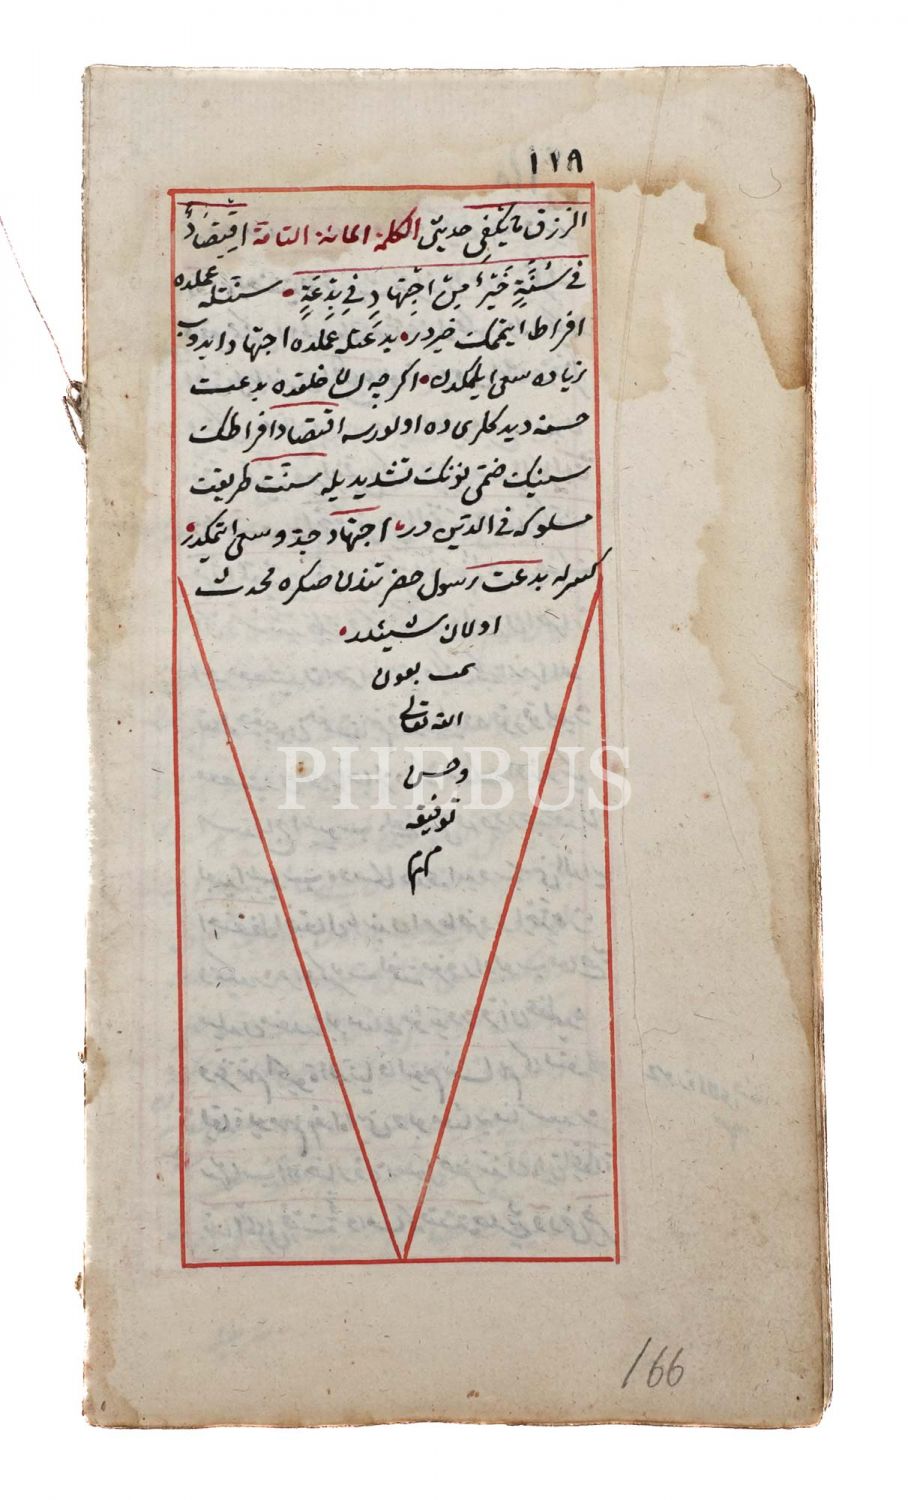 ١١٨
الرزق ما يكفى حديثى الكلمة المائة التامة اِقْتِصَادٌ
فى سُنَّةٍ خَيْرٌ مِنْ اجْتِهَادٍ فِى بِدْعَةٍ سنتله عملده
افراط ايتمك خيردر بدعتله عملده اجتهاد ايدوب
زياده سعى ايلمكدن اكرچه خلقده بدعت
حسنه ديدكلرى ده اولورسه اقتصاد افراطك
سينك ضمى نونك تشديديله سنت طريقت
مسلوكه فى الدين در اجتهاد جد و سعى اتمكدر
كسرله بدعت رسول حضرتندن صكره محدث
اولان شيئدر
تمت بعون
الله تعالى
وحسن
توفيقه
م م م
PHEBUS
166